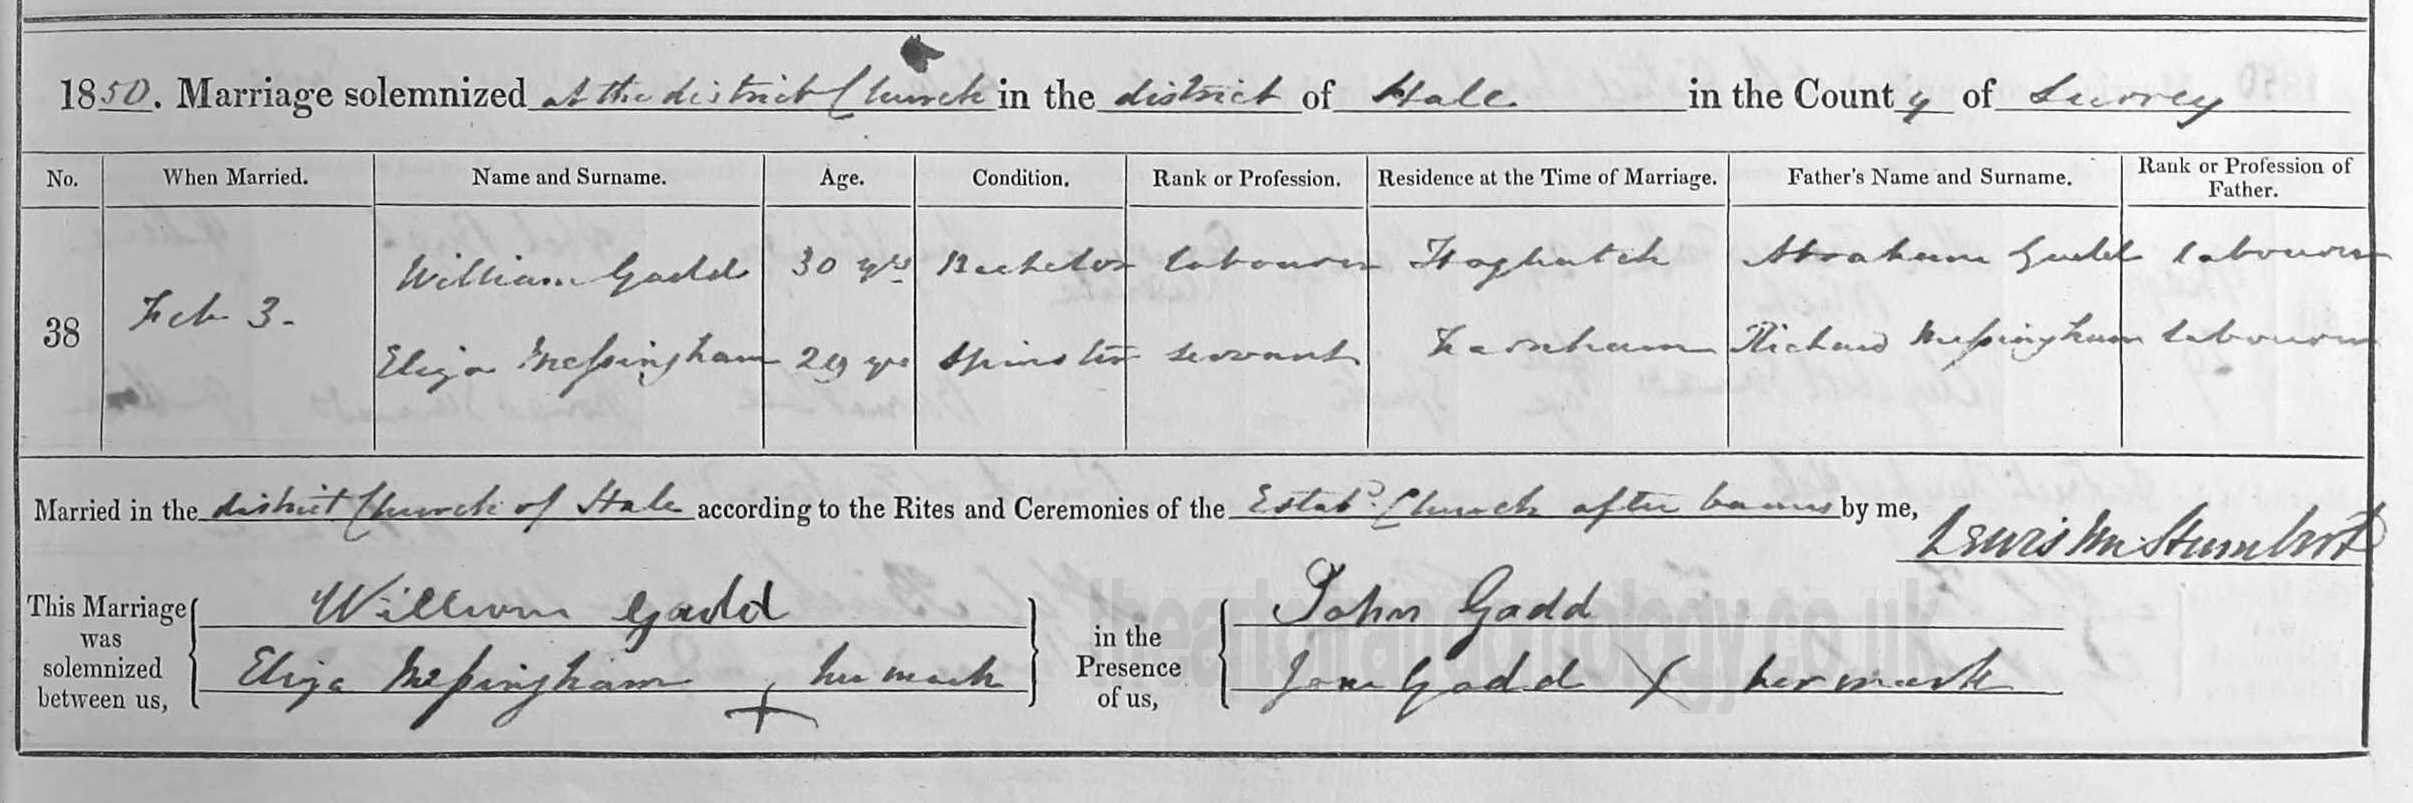 1850. Marriage solemnized at the district Church in the district of Hale in the County of Surrey
No. When Married. Name and Surname. Age. Condition. Rank or Profession. Residence at the Time of Marriage. Father's Name and Surname. Rank or Profession of Father.
William Gadd 30 yrs Bachelor labourer Hoghatch Abraham Gadd labourer
38 Feb 3.
Eliza Meſsingham 29 yrs Spinster servant Farnham Richard Meſsingham labourer
Married in the district Church of Hale according to the Rites and Ceremonies of the Estabd. Church after banns by me,
Lewis Wm
This Marriage was solemnized between us, William Gadd in the Presence of us, John Gadd
Eliza Meſsingham X her mark Jane Gadd X her mark
theartofrandomology.co.uk